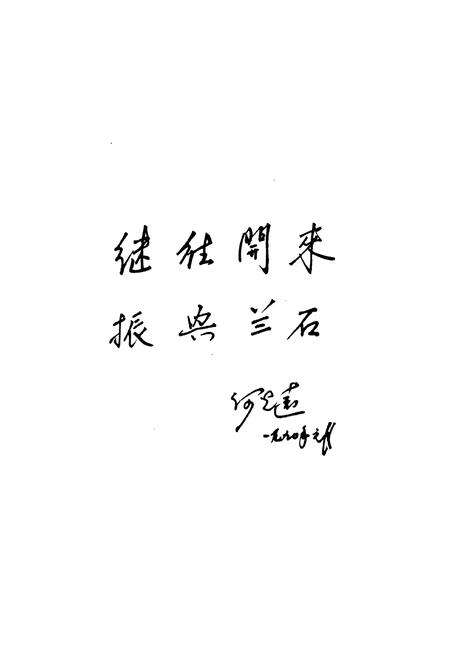 继往開来
振兴兰石
何光远
一九九〇年元月